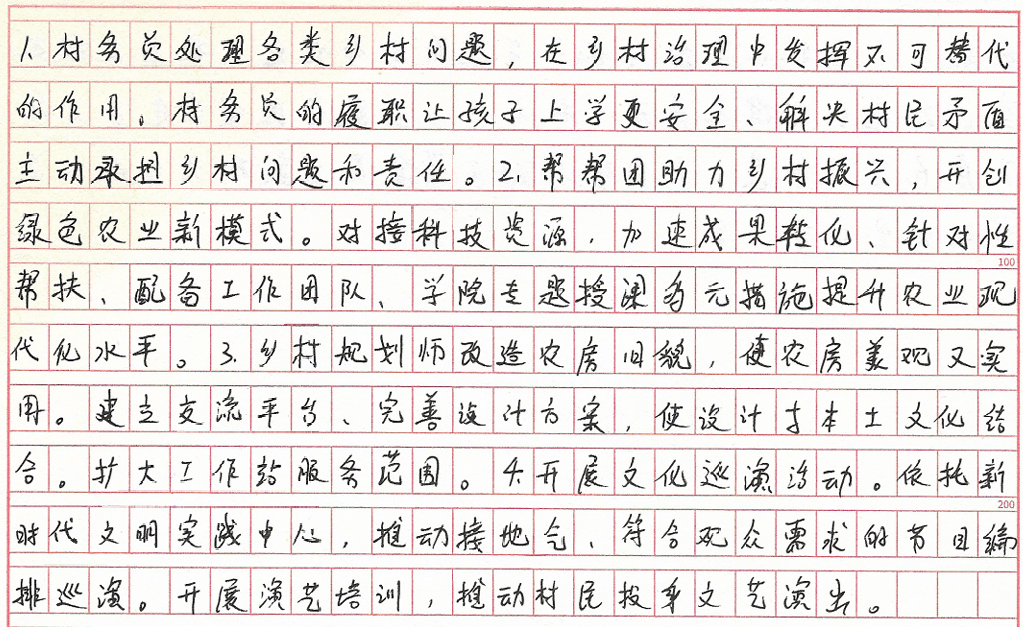 1.村务员处理各类乡村问题,在乡村治理中发挥不可替代
的作用。村务员的履职让孩子上学更安全、解决村民矛盾
主动承担乡村问题和责任。2.帮帮团助力乡村振兴,开创
绿色农业新模式。对接科技资源,加速成果转化、针对性
100
帮扶、配备工作团队、学院专题授课多元措施提升农业现
代化水平。3.乡村规划师改造农房旧貌,使农房美观又实
用。建立交流平台、完善设计方案,使设计与本土文化结
合。扩大工作站服务范围。4.开展文化巡演活动。依托新
200
时代文明实践中心,推动接地气、符合观众需求的节目编
排巡演。开展演艺培训,推动村民投身文艺演出。